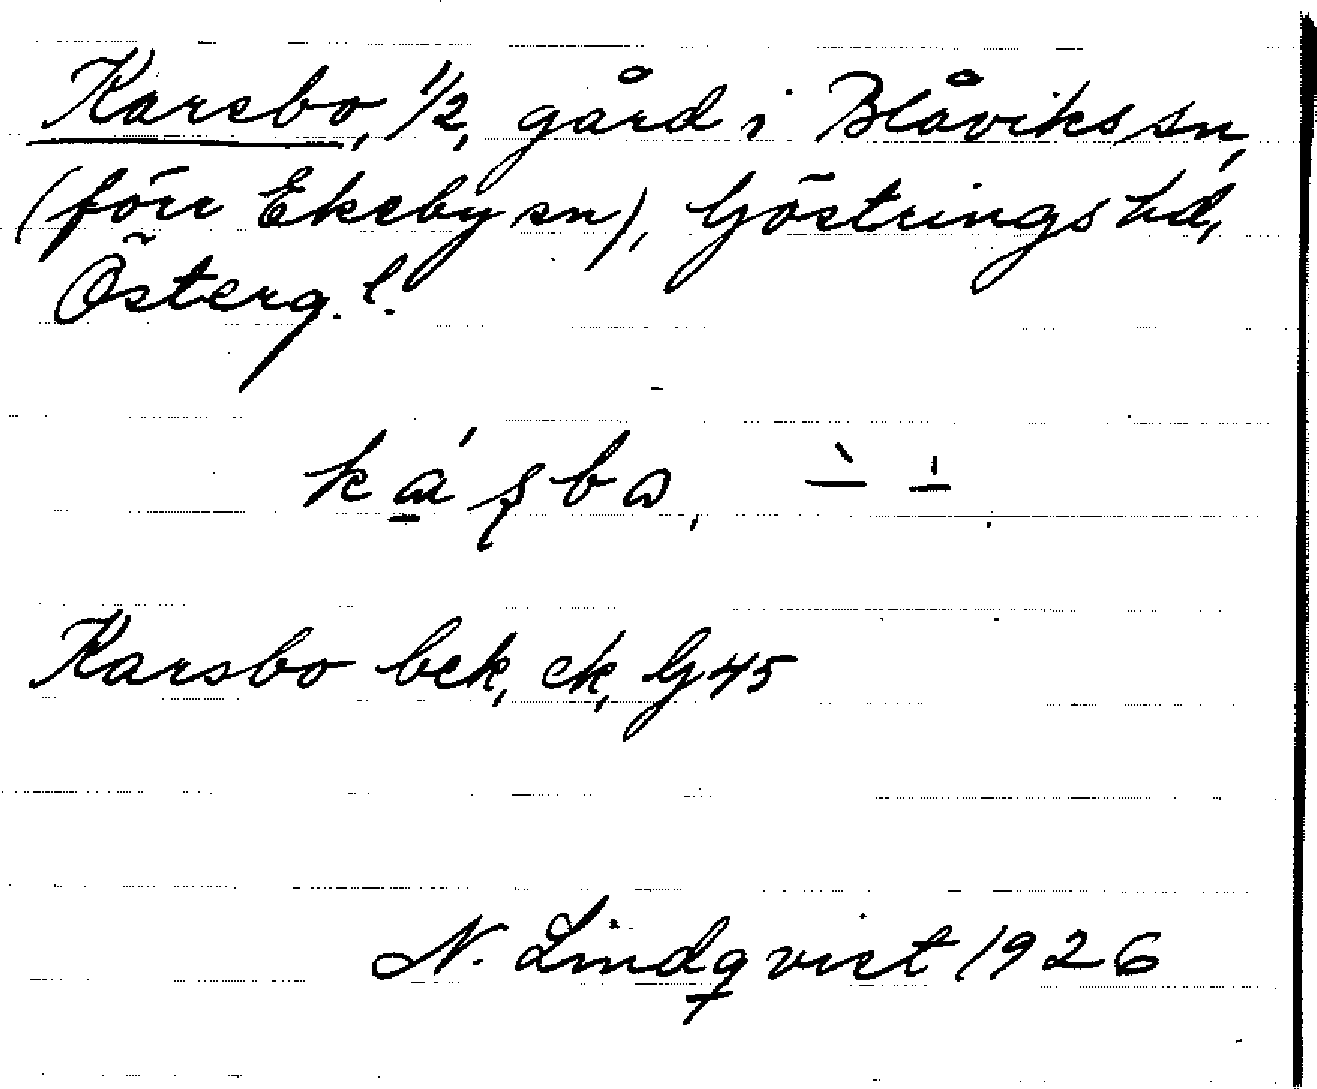 Karsbo, 1/2, gård i Blåviks sn,
(förr Ekeby sn), Göstrings hd,
Österg. l.
Karsbo bek, ek, G 45
N. Lindqvist 1926